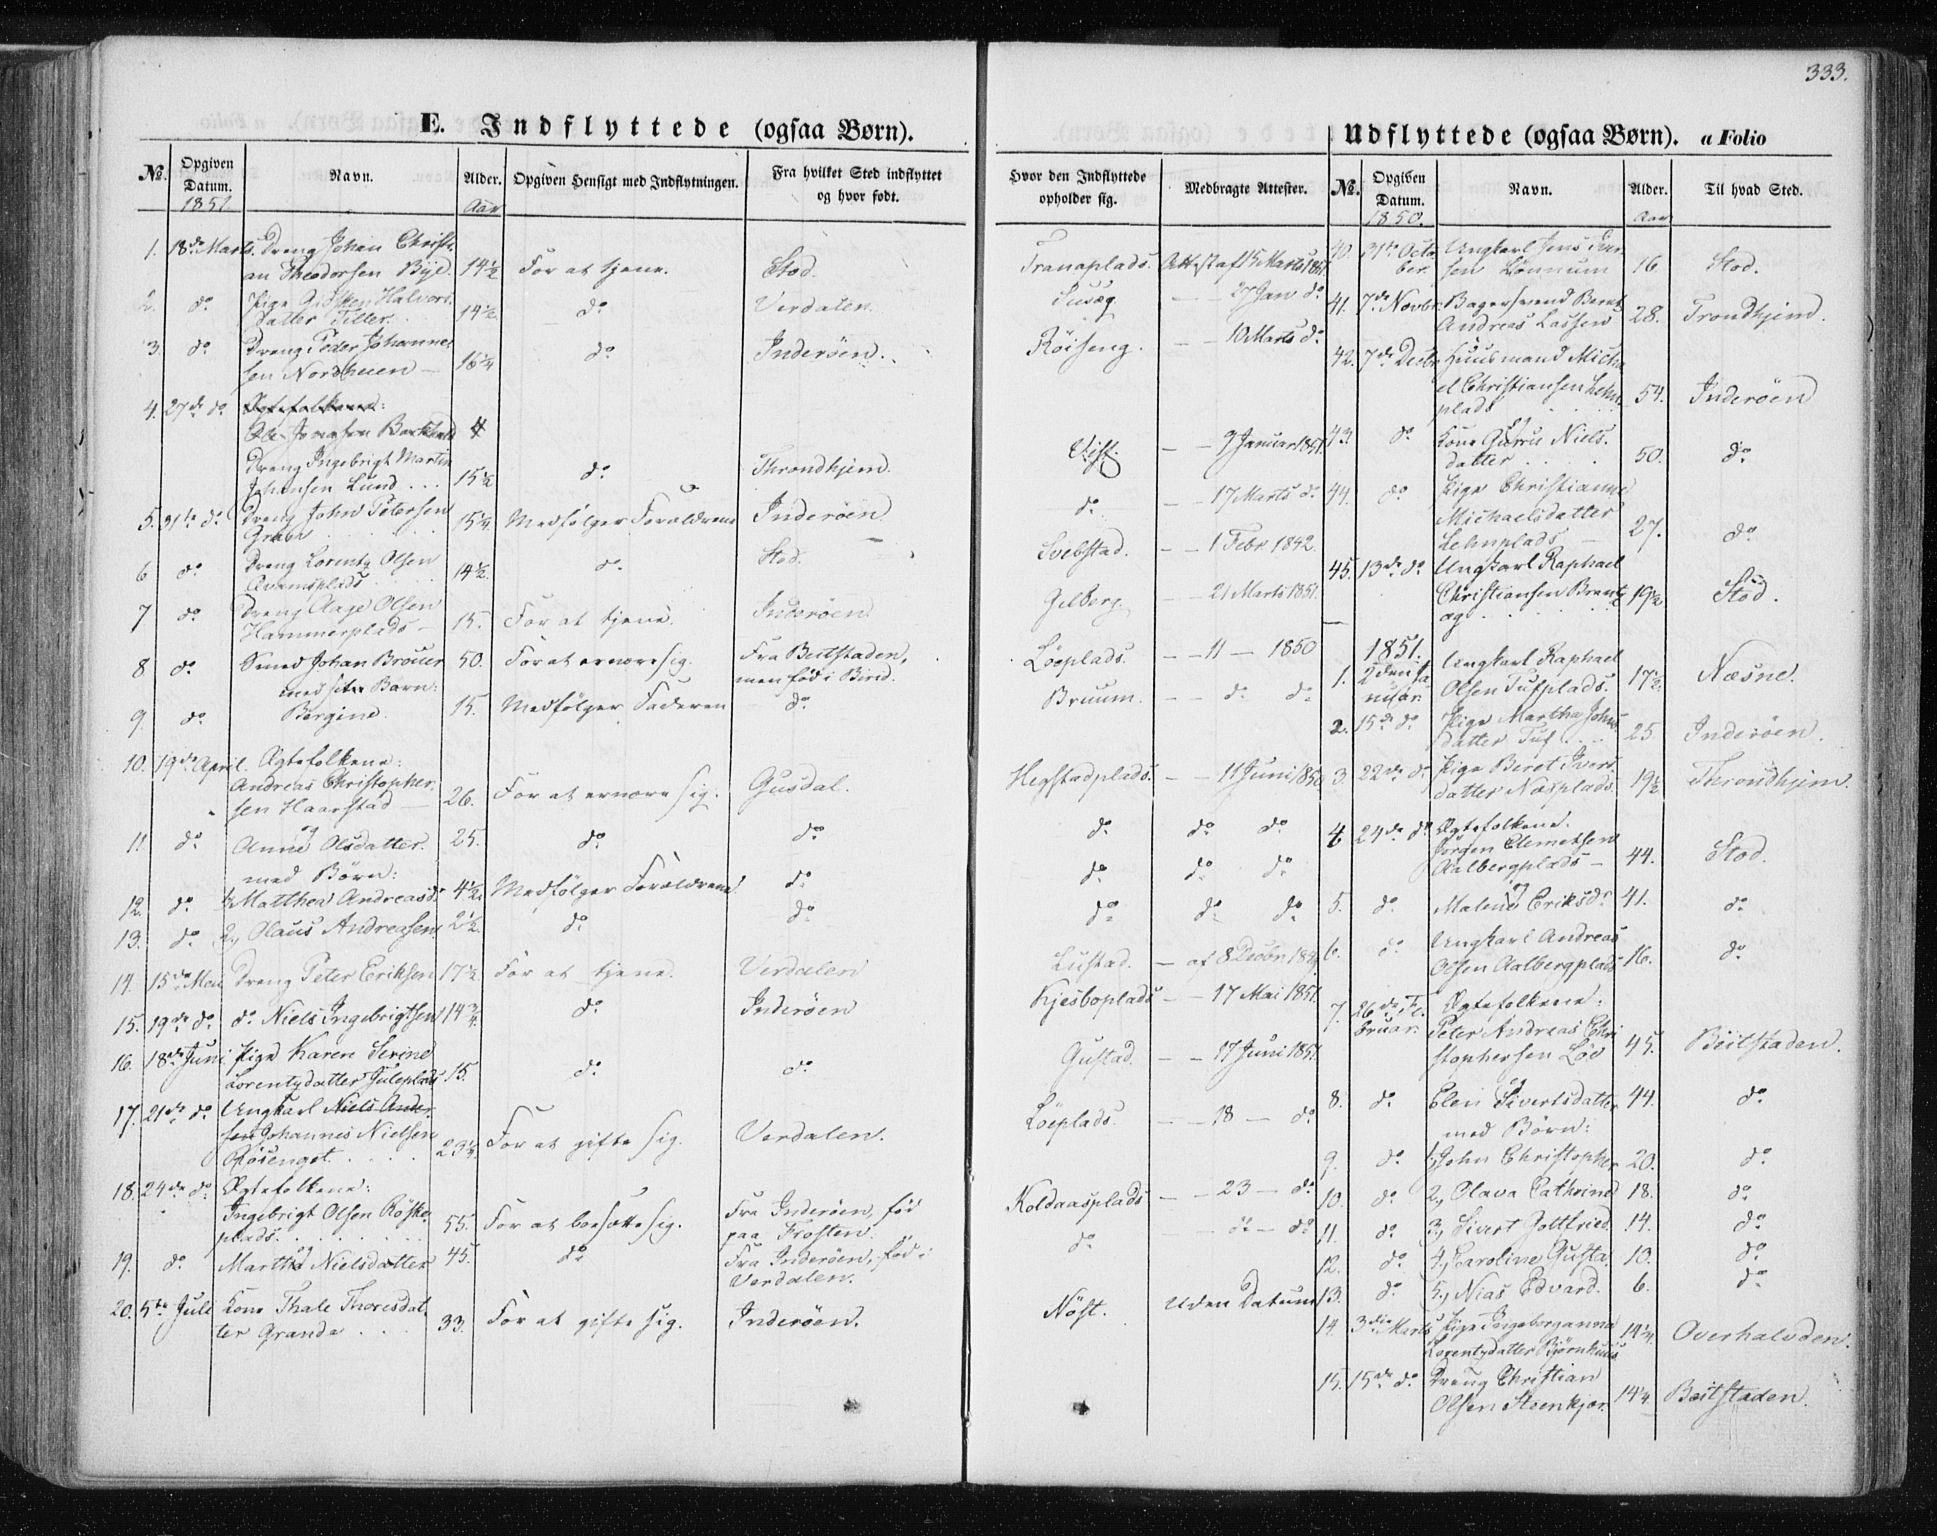 333.
E. Indflyttede (ogsaa Børn).
No. Opgiven Datum. Navn. Alder. Opgiven Hensigt med Indflytningen. Fra hvilket Sted indflyttet og hvor født. Hvor den Indflyttede opholder sig. Medbragte Attester.
1851 Aar
1. 18de Marts. Dreng Johan Christi
an Theodorsen Bye. 14½ For at tjene. Stod. Tranaplads. Attest af 15 Marts 1851.
2. do Pige Halvors
datter Tiller. 14½ do Verdalen. Susæg — — 27 Jan do
3. do Dreng Peder Johannes
sen Nordhuen — 16¼ do Inderøen. Røiseng. — — 10 Marts do
4. 27de do Ægtefolkene:
Ole Jonasen
Dreng Ingebrigt Martin
Johansen Lund ... 15½ do Throndhjem. Vist. — — 9 Januar 1851.
5. 31te do Dreng John Petersen
Grubn 15¼ Medfølger Forældrene Inderöen do — — 17 Marts do
6 do Dreng Lorentz Olsen
Qvamsplads 14½. do Stod. Svebstad. — — 1 Febr 1842.
7 do Dreng Aage Olsen
Hammerplads — 15. For at tjene. Inderöen Gilberg. — — 21 Marts 1851.
8 do Smed Johan Brouer 50. For at ernære sig. Fra Beitstaden,
men föd i Birid. Löeplads. — — 11 — 1850
med sit Barn:
9 do Bergine. 15. Medfölger Faderen do Bruum. — — do do
10. 19de April. Ægtefolkene:
Andreas Christopher
sen Haarstad — 26. For at ernære sig. Gusdal. Hegstadplads. — — 11 Juni 1850
og
11 do Anne Olsdatter. 25. do do do do do
med Börn:
12. do 1, Matthea Andreasd. 4½. Medfølger Forældrene do do do do
13. do 2, Olaus Andreasen 2½. do do do do do
14. 15de Mai Dreng Peter Eriksen 17½ For at tjene. Verdalen Lustad. — af 8 Decbr
15. 19de do do Niels Ingebrigtsen 14¾ do Inderöen Kjesboplads — — 17 Mai 1851.
16. 18de Juni Pige Karen Serine
Lorentzdatter Juleplads 15. do do Gustad. — — 17 Juni 1851.
17. 21de do Ungkarl Niels Ander
sen Johannes Nielsen
Rösenget. 23¼ For at gifte sig. Verdalen. Löeplads. — — 18 — do
18. 24de do Ægtefolkene:
Ingebrigt Olsen Röske
plads. 55. For at bosætte sig. Fra Inderöen, föd
paa Frosten. Koldaasplads — — 23 — do
og
19. do Martha Nielsdatter 45. do Fra Inderöen, föd i
Verdalen. do — — do — do
20. 5te Juli Kone Thale Thoresdat
ter Grande . . . 33. For at gifte sig. Inderöen. Nöst. Uden Datum
Udflyttede (ogsaa Børn). a Folio
No. Opgiven Datum. Navn. Alder. Til hvad Sted.
1850. Aar
40. 31te Octo
ber. Ungkarl Jens Iver
sen Lönnum 16. Stod.
41. 7de Novbr. Bagersvend Bernt
Andreas Lassen 28. Trondhjem.
42. 7de Decbr Huusmand Micha
el Christiansen Lehn
plads 54. Inderöen
og
43 do Kone Guru Niels
datter . . . 50. do
44. do Pige Christianne
Michaelsdatter
Lehnplads — 27. do
45. 13de do Ungkarl Raphael
Christiansen Brent
æg . . . 19½ Stod.
1851.
1. 2den Ja
nuar. Ungkarl Raphael
Olsen Tufplads. 17½. Næsne.
2. 15de do Pige Martha Johns
datter Tuf . . . 25 Inderöen.
3 22de do Pige Beret Ivers
datter Næsplads. 19½ Throndhjem.
4 24de do Ægtefolkene.
Jörgen Clemetsen
Aalbergplads — 44. Stod.
og
5. do Malene Eriksdr 41. do
6. do Ungkarl Andreas
Olsen Aalbergplads 16. do
7. 26de Fe
bruar. Ægtefolkene:
Peter Andreas Chri
stophersen Löe 45. Beitstaden.
og
8. do Elen Sivertsdatter 44. do
med Börn:
9. do 1, John Christopher 20. do
10. do 2, Olava Cathrine 18. do
11. do 3, Sivert Gottfried. 14. do
12. do 4, Caroline Gusta. 10. do
13. do 5, Nias Edvard. 6. do
14. 3die Marts Pige Ingeboranna
Lorentzdatter Björnhuus 14¼ Overhalvden.
15. 15de do Dreng Christian
Olsen Steenkjær. 14¼ Beitstaden.